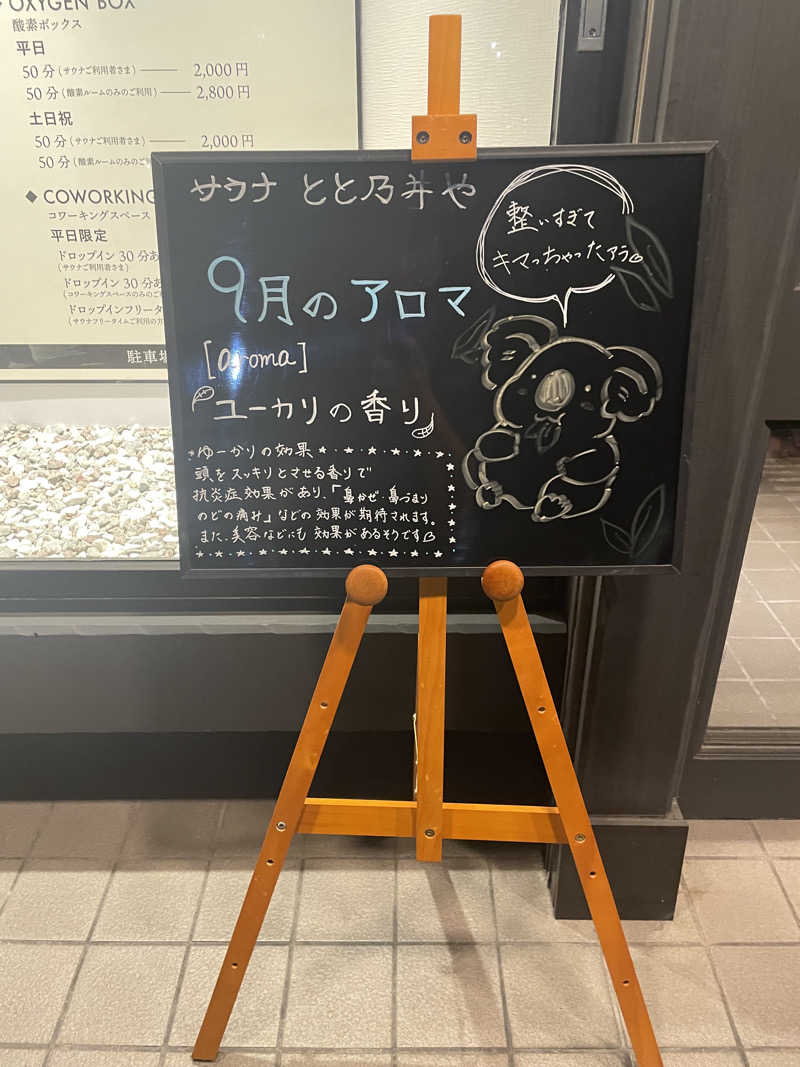 OXYGEN BOX
酸素ボックス
平日
50分(サウナご利用者さま) 2,000円
50分(酸素ルームのみのご利用) 2,800円
土日祝
50分(サウナご利用者さま) 2,000円
50分(酸素ルームのみのご
◆ COWORKING
コワーキングスペース
平日限定
ドロップイン 30分あ
(サウナご利用者さま)
ドロップイン 30分あ
(コワーキングスペースのみのご
ドロップインフリータ
(サウナフリータイムご利用の方
駐車場
サウナ とと乃井や
整いすぎて
キマっちゃったアラ
9月のアロマ
[aroma]
ユーカリの香り
ゆーかりの効果
頭をスッキリとさせる香りで
抗炎症効果があり、「鼻かぜ、鼻づまり
のどの痛み」などの効果が期待されます。
また、美容などにも効果があるそうです